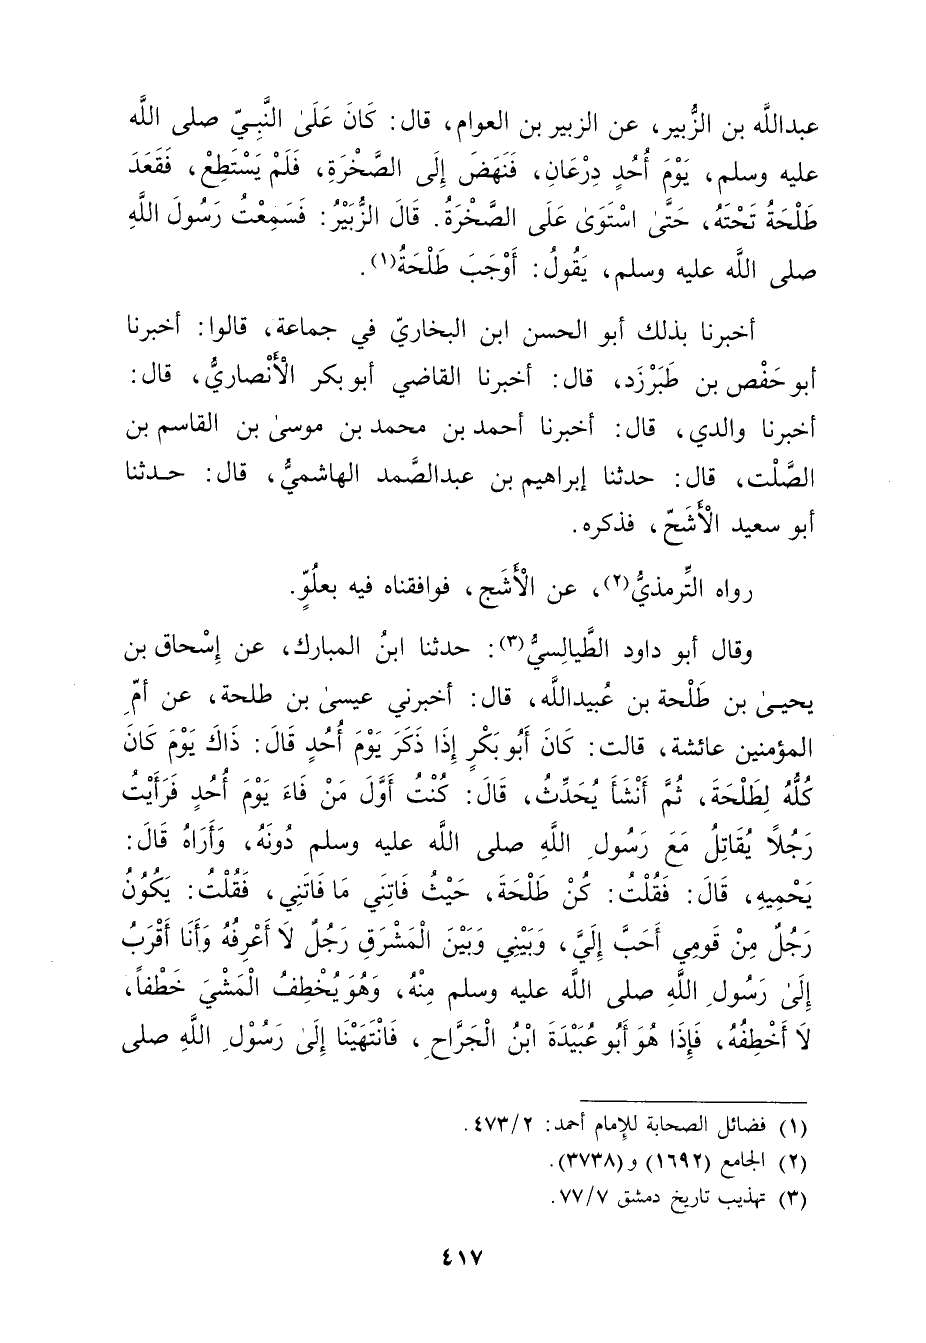 عبدالله بن الزُّبير، عن الزبير بن العوام، قال: كَانَ عَلَىٰ النَّبِيّ صلى الله
عليه وسلم، يَوْمَ أُحُدٍ دِرْعَانِ، فَنَهَضَ إِلَى الصَّخْرَةِ، فَلَمْ يَسْتَطِعْ، فَقَعَدَ
طَلْحَةُ تَحْتَهُ، حَتَّىٰ اسْتَوَىٰ عَلَى الصَّخْرَةُ. قَالَ الزُّبَيْرُ: فَسَمِعْتُ رَسُولَ اللَّهِ
صلى الله عليه وسلم، يَقُولُ: أَوْجَبَ طَلْحَةُ(١).
أخبرنا بذلك أبو الحسن ابن البخاريّ في جماعة، قالوا: أخبرنا
أبو حَفْص بن طَبَرْزَد، قال: أخبرنا القاضي أبو بكر الْأَنْصاريُّ، قال:
أخبرنا والدي، قال: أخبرنا أحمد بن محمد بن موسىٰ بن القاسم بن
الصَّلْت، قال: حدثنا إبراهيم بن عبدالصَّمد الهاشميُّ، قال: حدثنا
أبو سعيد الْأَشَجّ، فذكره.
رواه التِّرمذيُّ(٢)، عن الْأَشَج، فوافقناه فيه بعلُوٍّ.
وقال أبو داود الطَّيالِسيُّ(٣): حدثنا ابنُ المبارك، عن إِسْحاق بن
يحيىٰ بن طَلْحة بن عُبيدالله، قال: أخبرني عيسىٰ بن طلحة، عن أمّ
المؤمنين عائشة، قالت: كَانَ أَبُو بَكْرٍ إِذَا ذَكَرَ يَوْمَ أُحُدٍ قَالَ: ذَاكَ يَوْمَ كَانَ
كُلُّهُ لِطَلْحَةَ، ثُمَّ أَنْشَأَ يُحَدِّثُ، قَالَ: كُنْتُ أَوَّلَ مَنْ فَاءَ يَوْمَ أُحُدٍ فَرَأَيْتُ
رَجُلاً يُقَاتِلُ مَعَ رَسُولِ اللَّهِ صلى الله عليه وسلم دُونَهُ، وَأَرَاهُ قَالَ:
يَحْمِيهِ، قَالَ: فَقُلْتُ: كُنْ طَلْحَةَ، حَيْثُ فَاتَنِي مَا فَاتَنِي، فَقُلْتُ: يَكُونُ
رَجُلٌ مِنْ قَومِي أَحَبَّ إِلَيَّ، وَبَيْنِي وَبَيْنَ الْمَشْرَقِ رَجُلٌ لاَ أَعْرِفُهُ وَأَنَا أَقْرَبُ
إِلَىٰ رَسُولِ اللَّهِ صلى الله عليه وسلم مِنْهُ، وَهُوَ يُخْطِفُ الْمَشْيَ خَطْفاً،
لاَ أَخْطِفُهُ، فَإِذَا هُوَ أَبُو عُبَيْدَةَ ابْنُ الْجَرَّاحِ، فَانْتَهَيْنَا إِلَىٰ رَسُوْلِ اللَّهِ صلى
(١) فضائل الصحابة للإمام أحمد: ٤٧٣/٢.
(٢) الجامع (١٦٩٢) و(٣٧٣٨).
(٣) تهذيب تاريخ دمشق ٧٧/٧.
٤١٧